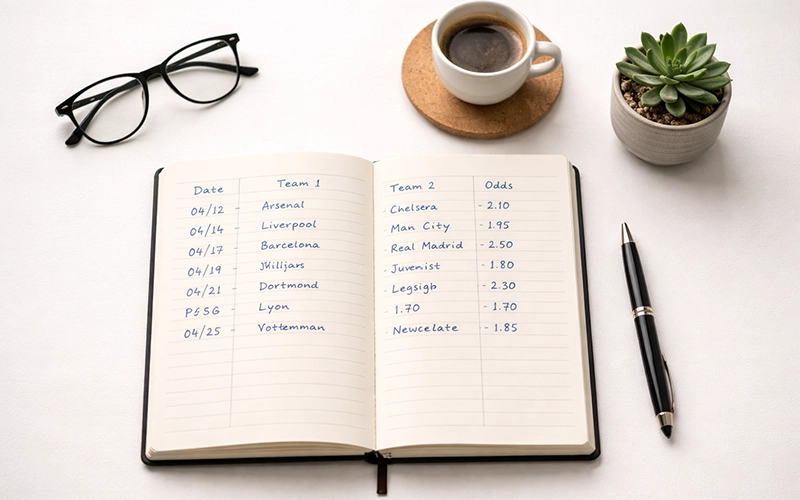 Date Team 1 Team 2 Odds
04/12 - Arsenal - Chelsera - 2.10
04/14 - Liverpool - Man City - 1.95
04/17 - Barcelona - Real Madrid - 2.50
04/19 - - Juvenist - 1.80
04/21 - Dortmond - Legsigb - 2.30
PSSG - Lyon - 1.70 - 1.70
04/25 - Vottemman - Newcelate - 1.85